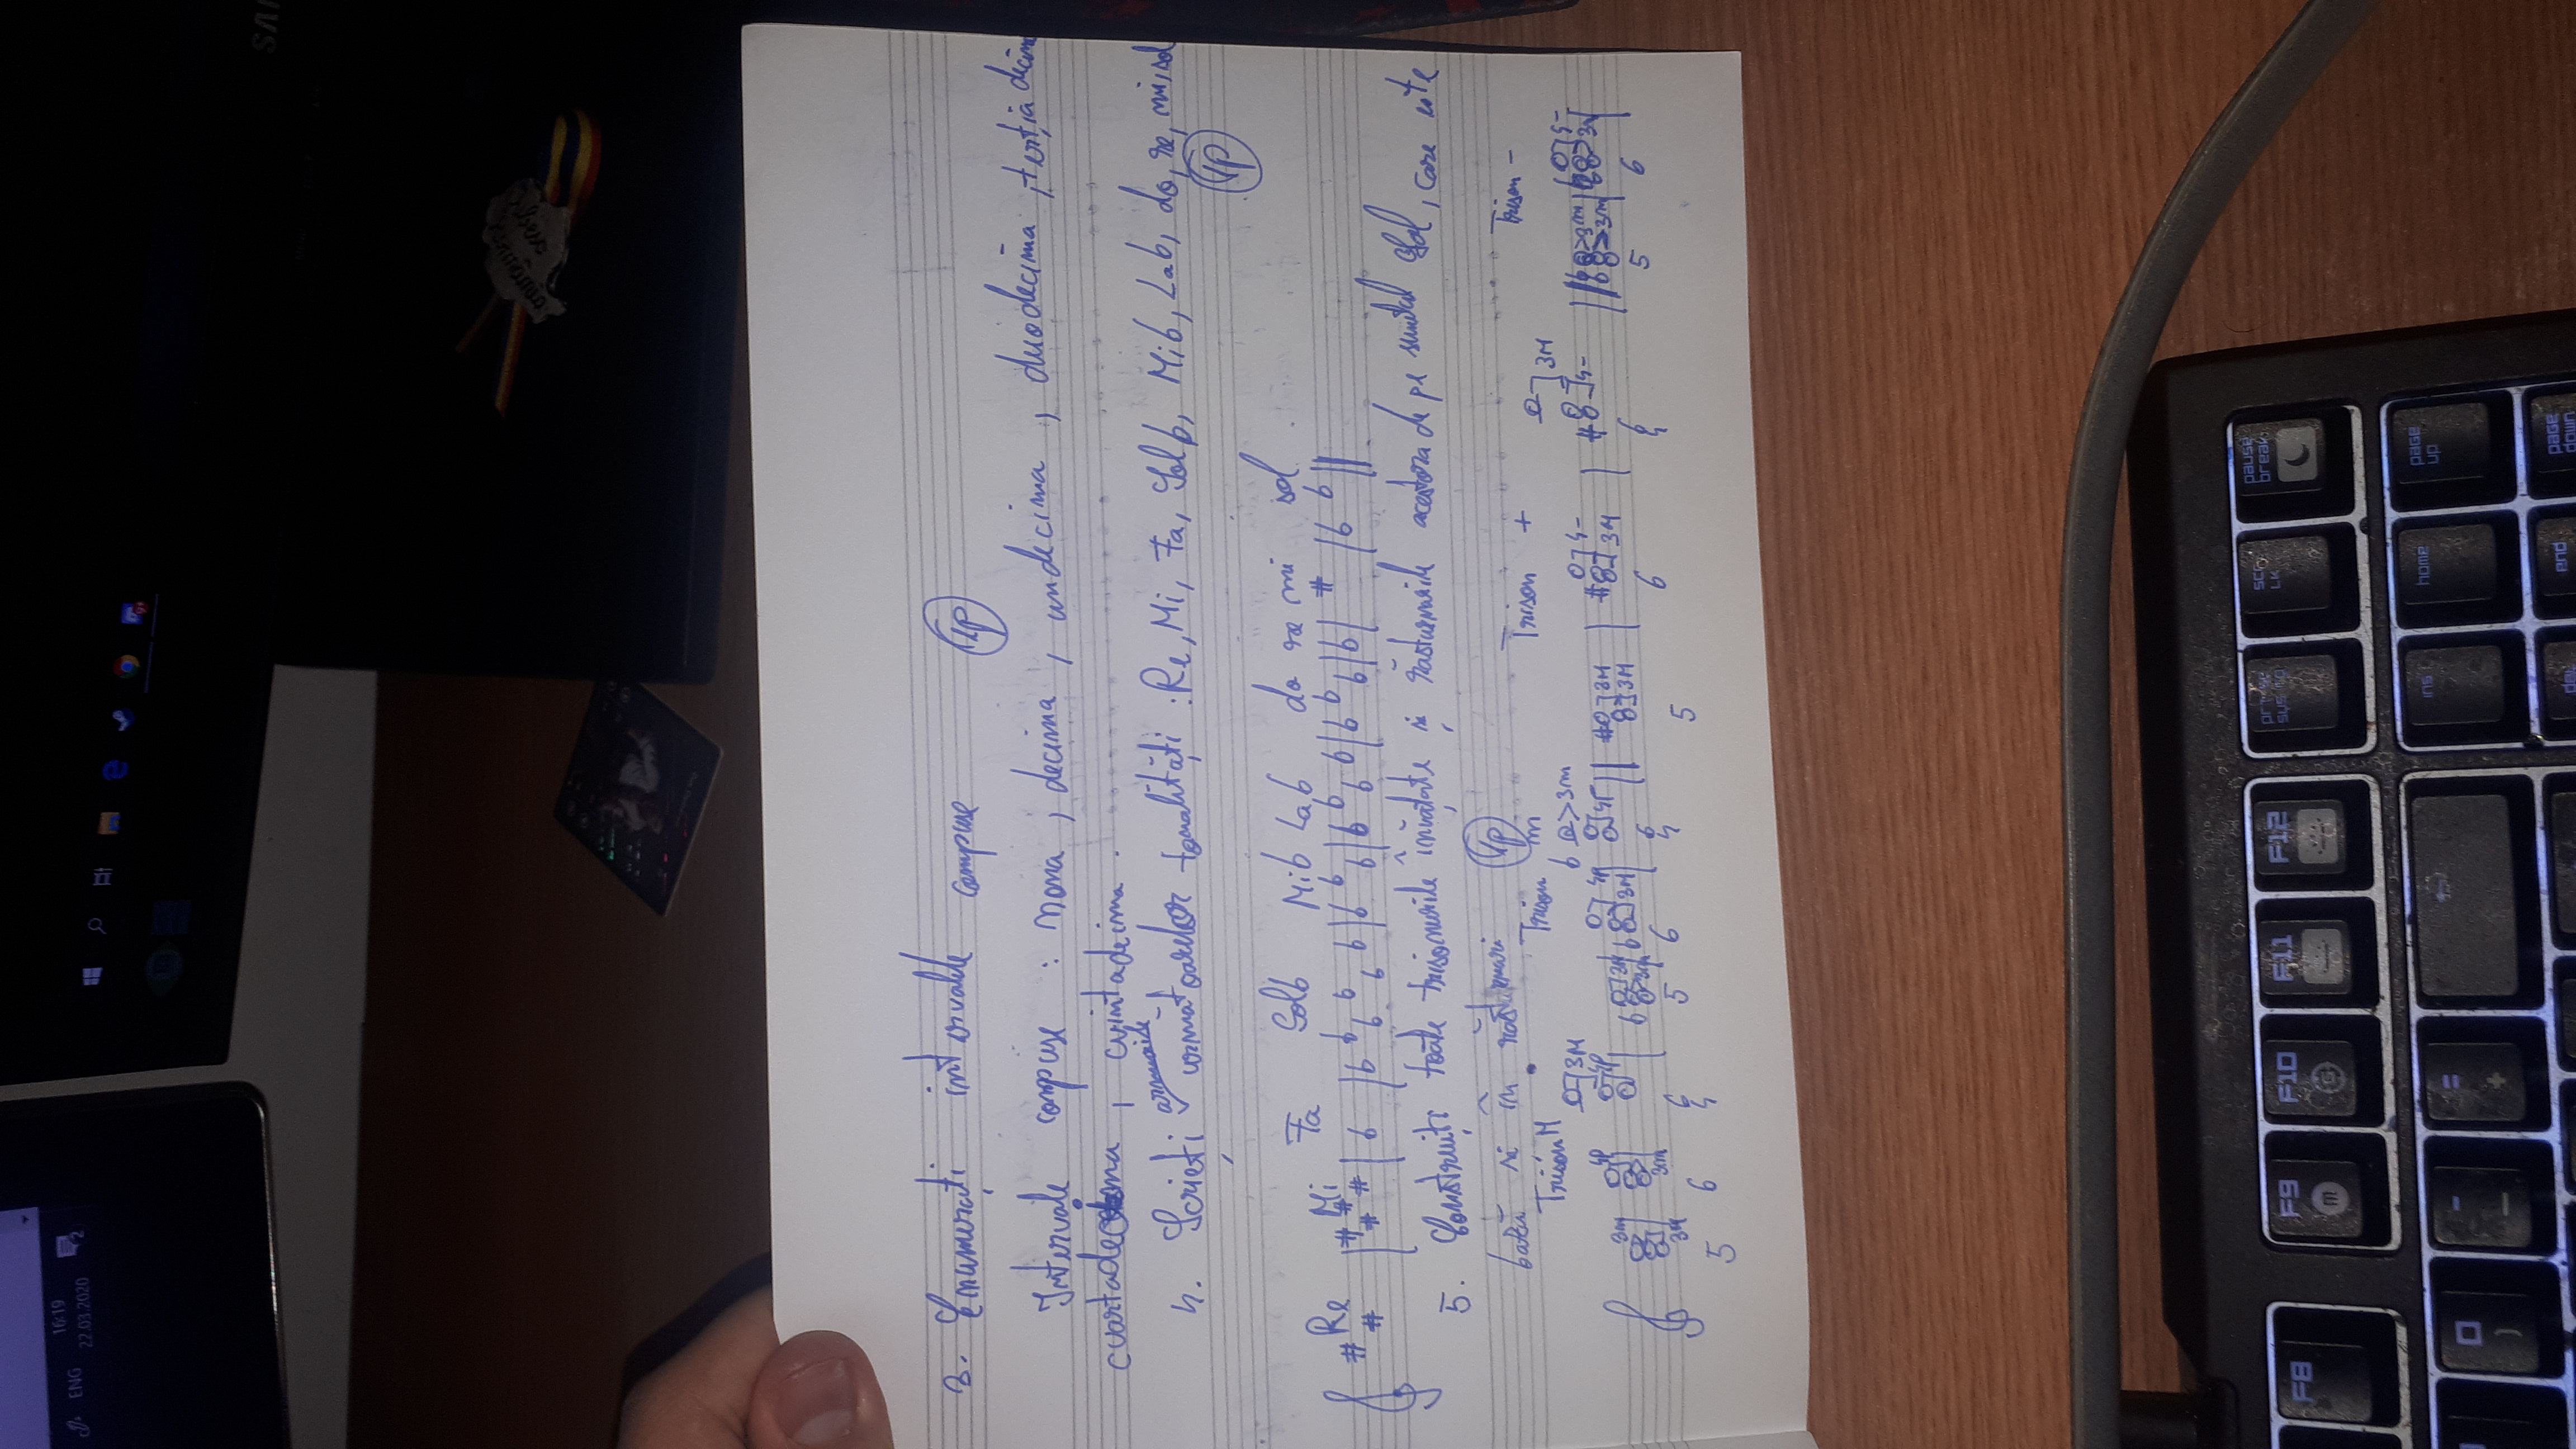 3. Enumerați intervale compuse 1p
Intervale compuse : nona , decima , undecima , duodecima , terțiadecima
cvartadecima , cvintadecima .
armurile
4. Scrieți următoarelor tonalități : Re, Mi, Fa, Solb, Mib, Lab, do, re, mi, sol
1p
Re Mi Fa Solb Mib Lab do re mi sol
5. Construiți toate trisonurile învățate și răsturnările acestora de pe sunetul Sol, care este
bază și în răsturnări 1p
Trison M Trison m Trison + Trison -
3m 4p 3M 3M 4p 3m 3M 4- 3M 3m 4-
3M 3m 4p 3m 3M 4p 3M 3M 4- 3m 3m
5 6 6 4 5 6 6 4 5 6 6 4 5 6
16:19
22.03.2020
ENG
2
F8
F9
F10
F11
F12
pause
break
page
up
page
down
home
end
ins